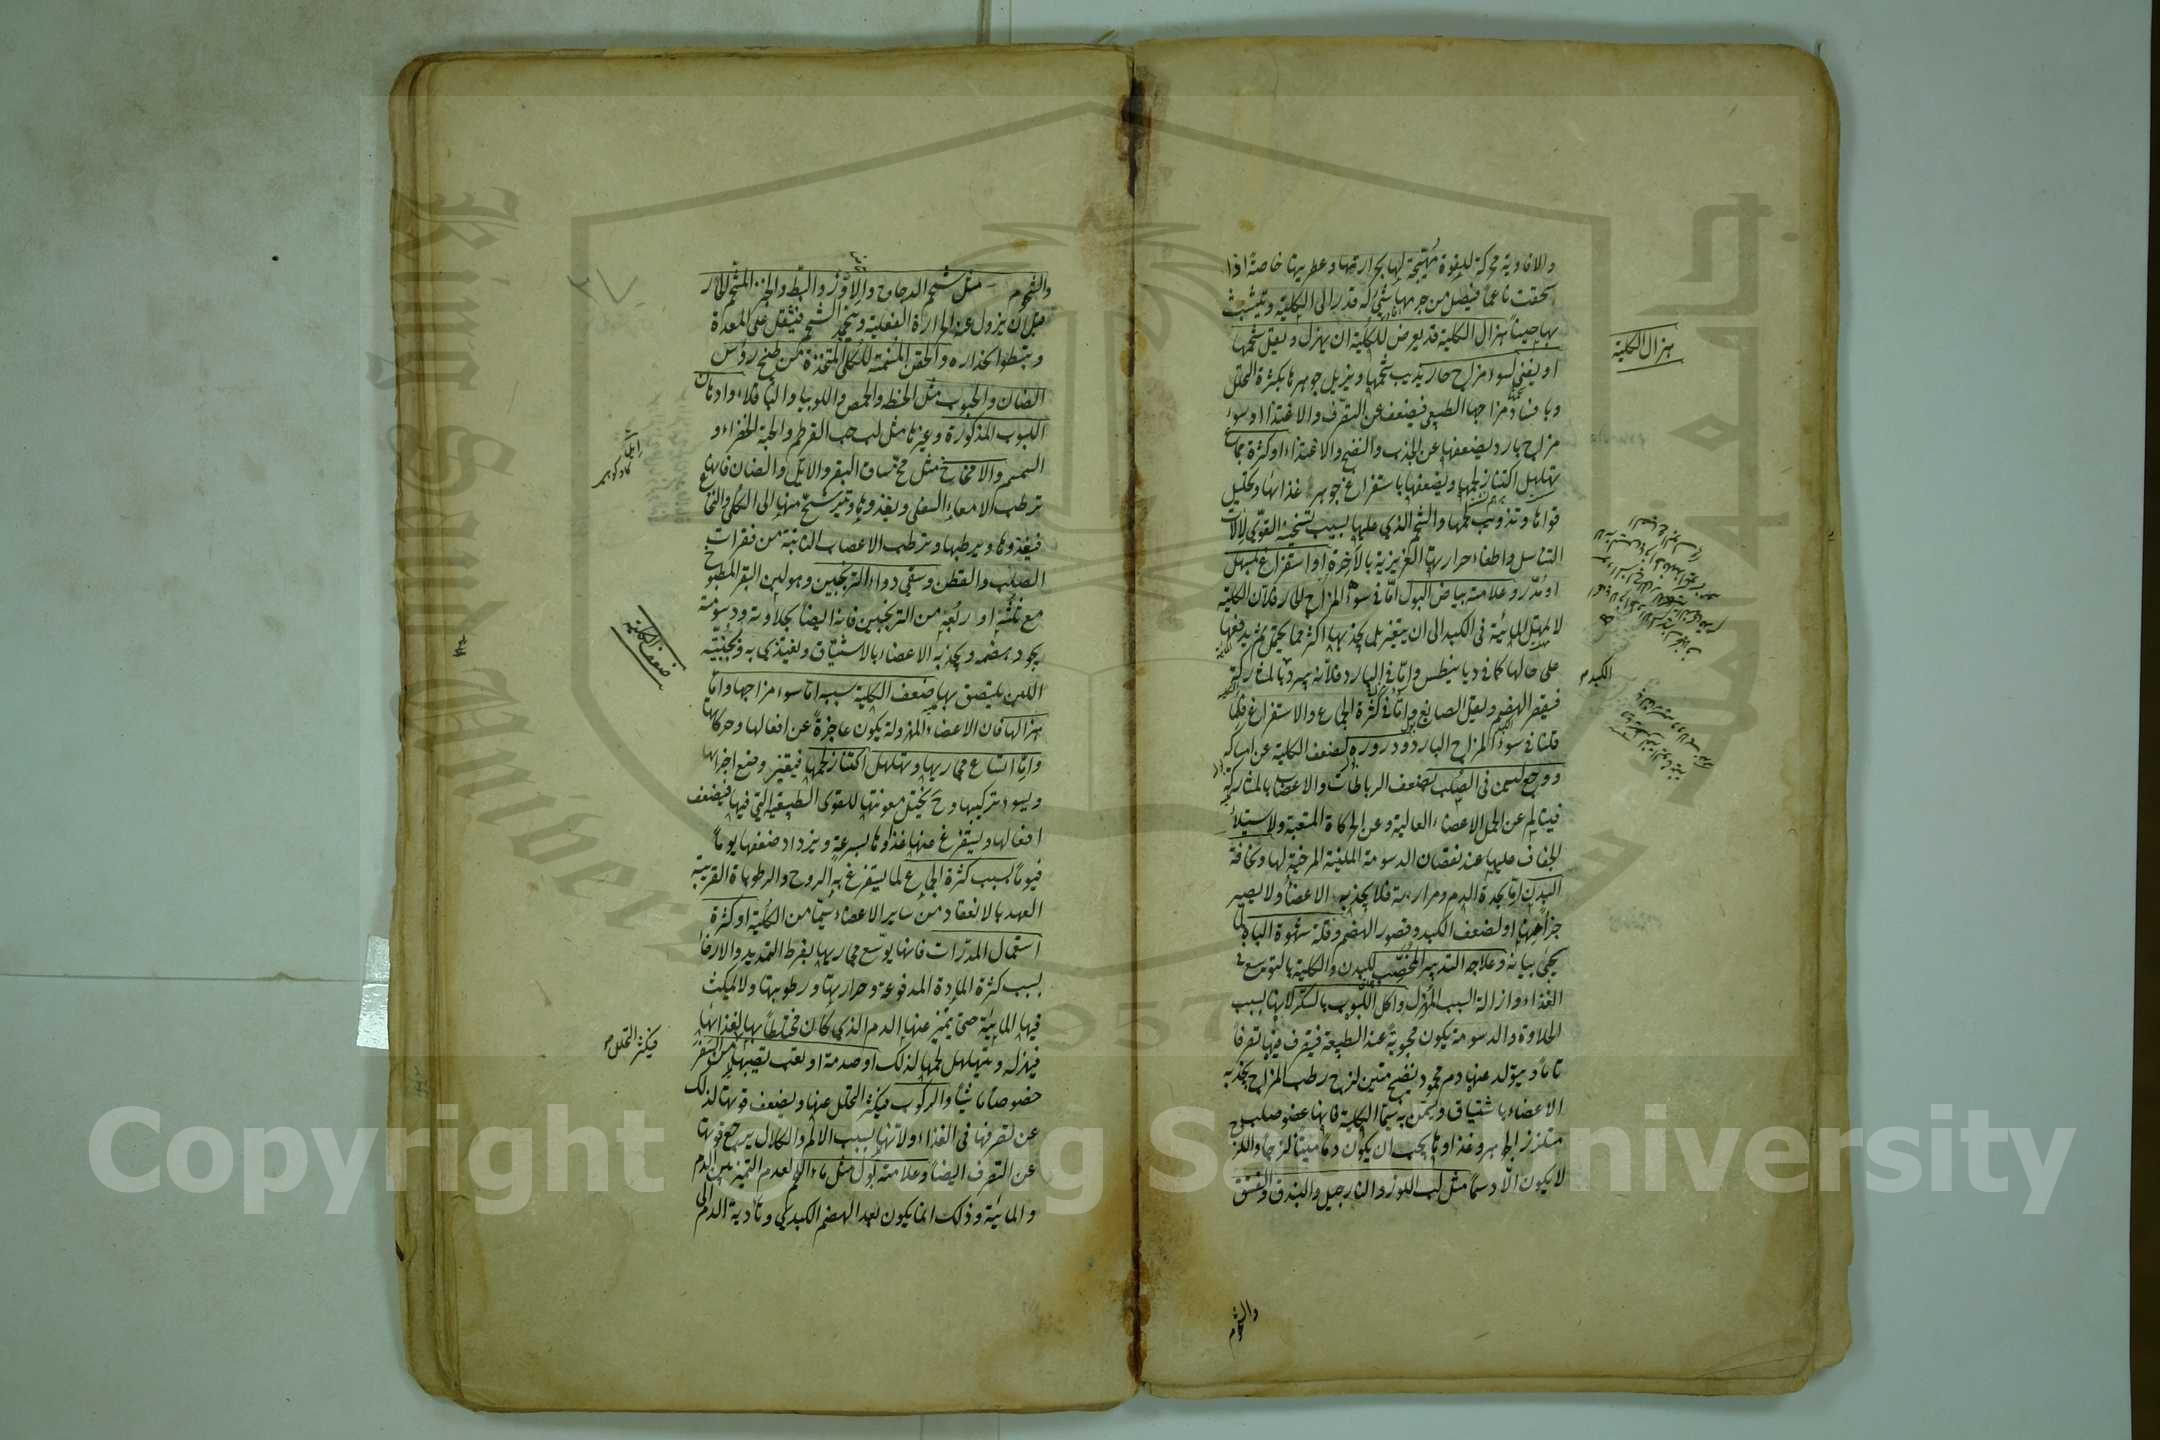 والافاوية محركة للقوة مهيجة لها بحرارتها وعطريتها خاصة اذا
سحقت ناعما فيصل من جرمها شئ له قدر الى الكلية ويتشبث
بها حينا هزال الكلية قد يعرض للكلية ان يهزل ويقل شحمها
او يفنى لسوء مزاج حار يذيب شحمها ويزيل جوهرها بكثرة التحلل
وبافساد مزاجها الطبيعي فيضعف عن التصرف والاغتذاء او سوء
مزاج بارد يضعفها عن الجذب والنضج والاغتذاء او كثرة جماع
تهلهل اكتناز لحمها ويضعفها باستفراغ جوهر غذائها وتحليل
قواها وتذويب لحمها والشحم الذي عليها بسبب تسخينه القوي لالات
التناسل واطفاء حرارتها الغريزية بالاخرة او استفراغ بمسهل
او مدر وعلامته بياض البول اما في سوء المزاج الحار فلان الكلية
لا يمهل المائية في الكبد الى ان يتغير بل يجذبها اكثر مما يحتمل ثم يدفعها
على حالها كما في ديابيطس واما في البارد فلانه يبرد بالمشاركة
فيقصر الهضم ويقل الصابغ واما في كثرة الجماع والاستفراغ فلما
قلنا في سوء المزاج البارد ودروره لضعف الكلية عن امساكه
ووجع لين في الصلب لضعف الرباطات والاعصاب بالمشاركة
فيتالم عن الحمل الاعضاء العالية وعن الحركات المتعبة ولاستيلاء
الجفاف عليها عند نقصان الدسومة الملينة المرخية لها ونحافة
البدن اما بحدة الدم ومرارته فلا يجذبه الاعضاء ولا يصير
جزءا منها او لضعف الكبد وقصور الهضم وقلة شهوة الباه لما
يجئ بيانه وعلاجه التدبير المخصب للبدن والكلية بالتوسع في
الغذاء وازالة السبب المهزل واكل اللبوب بالسكر لانها بسبب
الحلاوة والدسومة يكون محبوبة عند الطبيعة فيتصرف فيها تصرفا
تاما ويتولد عنها دم محمود نضيج متين لزج رطب المزاج يجذبه
الاعضاء باشتياق ويسمن به سيما الكلية فانها عضو صلب
متلزز الجوهر وغذاؤها يجب ان يكون دما متينا لزجا واللزج
لا يكون الا دسما مثل لب اللوز والنارجيل والبندق والفستق
هزال الكلية
الكبد
والشحوم
والشحوم مثل شحم الدجاج والاوز والبط والخبز المشحم الحار
قبل ان يزول عنه الحرارة الفعلية ويتجمد الشحم فيثقل على المعدة
ويبطؤ انحداره والحقن المسمنة للكلى المتخذة من طبخ رؤس
الضان والحبوب مثل الحنطة والحمص واللوبيا والباقلاء وادهان
اللبوب المذكورة وغيرها مثل لب حب القرطم والحبة الخضراء و
السمسم والامخاخ مثل مخ ساق البقر والايل والضان فانها
ترطب الامعاء السفلى ويغذوها ويترشح منها الى الكلى والنخاع
فيغذوها ويرطبها ويرطب الاعصاب النابتة من فقرات
الصلب والقطن وسقي دواء الترنجبين وهو لبن البقر المطبوخ
مع ثلثه او ربعه من الترنجبين فانه ايضا بحلاوته ودسومته
يجود هضمه ويجذبه الاعضاء بالاشتياق ويغتذي به وبجبنيته
اللبن يلتصق بها ضعف الكلية سببه اما سوء مزاجها واما
هزالها فان الاعضاء المهزولة يكون عاجزة عن افعالها وحركاتها
واما اتساع مجاريها وتهلهل اكتناز لحمها فيتغير وضع اجزائها
ويسوء تركيبها وح يختل معونتها للقوى الطبيعية التي فيها فيضعف
افعالها ويستفرغ عنها غذاؤها بسرعة ويزداد ضعفها يوما
فيوما بسبب كثرة الجماع لما يستفرغ به الروح والرطوبات القريبة
العهد بالانعقاد من ساير الاعضاء سيما من الكلية او كثرة
استعمال المدرات فانها يوسع مجاريها بفرط التمديد والارخاء
بسبب كثرة المادة المدفوعة وحرارتها ورطوبتها ولا يمكث
فيها المائية حتى يتميز عنها الدم الذي كان مختلطا بها لغذائها
فيهزله ويتهلهل لحمها لذلك او صدمة او تعب يصيبها من السفر
خصوصا ماشيا والركوب فيكثر التحلل عنها ويضعف قوتها لذلك
عن تصرفها في الغذاء ولانها بسبب الالم والكلال يرجع قوتها
عن التصرف ايضا وعلامته بول مثل ماء اللحم لعدم التميز بين الدم
والمائية وذلك انما يكون بعد الهضم الكبدي وتادية الدم الى
ضعف الكلية
فيكثر التحلل
Copyright © King Saud University
King Saud University
1957